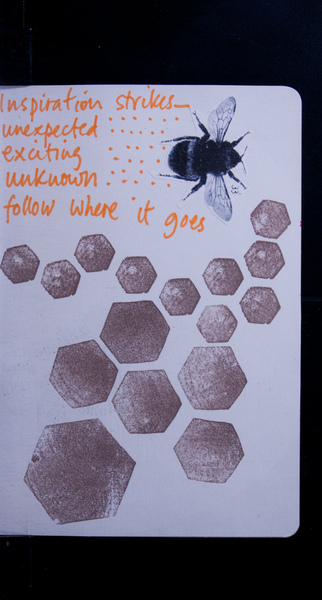 Inspiration strikes
unexpected
exciting
unknown
follow where it goes